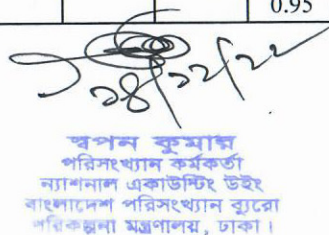 0.95
১৪/১২/২২
স্বপন কুমার
পরিসংখ্যান কর্মকর্তা
ন্যাশনাল একাউন্টিং উইং
বাংলাদেশ পরিসংখ্যান ব্যুরো
পরিকল্পনা মন্ত্রণালয়, ঢাকা।